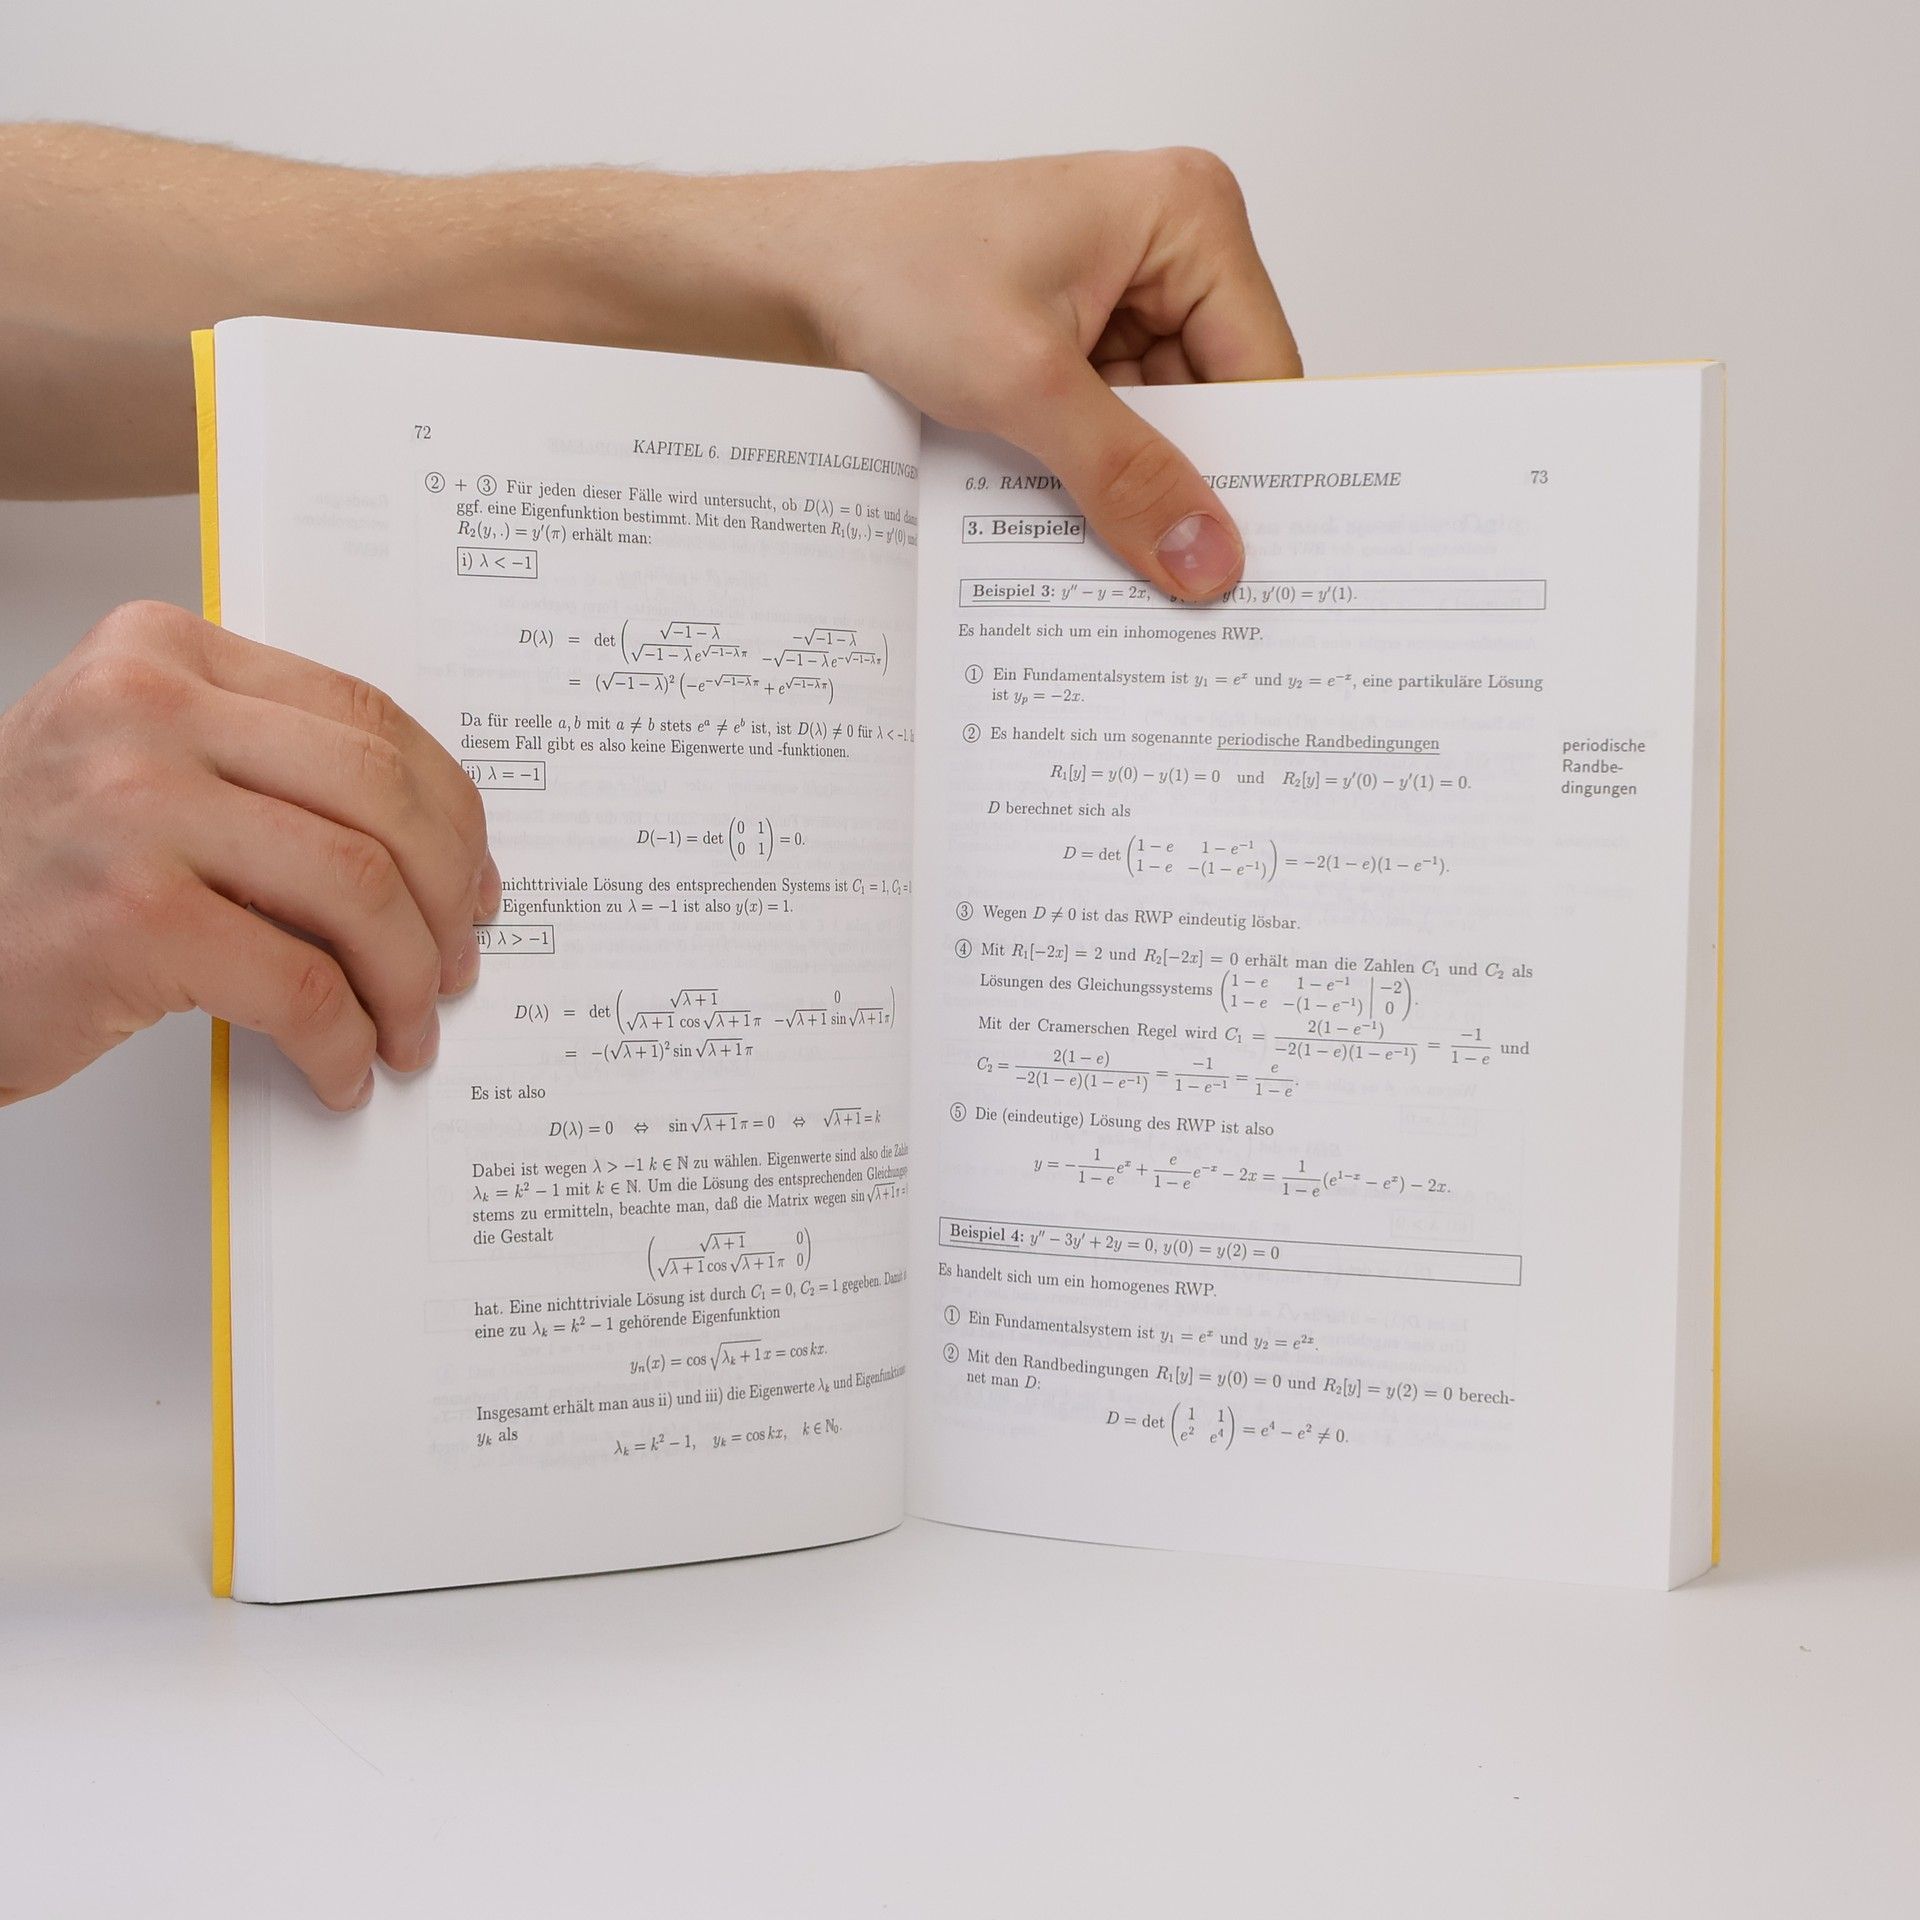 72
KAPITEL 6. DIFFERENTIALGLEICHUNGEN
② + ③ Für jeden dieser Fälle wird untersucht, ob D(λ) = 0 ist und dann
ggf. eine Eigenfunktion bestimmt. Mit den Randwerten R₁(y, .) = y′(0) und
R₂(y, .) = y′(π) erhält man:
i) λ < −1
D(λ) = det ( √−1−λ −√−1−λ
√−1−λ e^{√−1−λ π} −√−1−λ e^{−√−1−λ π} )
= (√−1−λ)² (−e^{−√−1−λ π} + e^{√−1−λ π})
Da für reelle a, b mit a ≠ b stets eᵃ ≠ eᵇ ist, ist D(λ) ≠ 0 für λ < −1. In
diesem Fall gibt es also keine Eigenwerte und -funktionen.
ii) λ = −1
D(−1) = det ( 0 1
0 1 ) = 0.
nichttriviale Lösung des entsprechenden Systems ist C₁ = 1, C₂ =
Eigenfunktion zu λ = −1 ist also y(x) = 1.
ii) λ > −1
D(λ) = det ( √λ+1 0
√λ+1 cos √λ+1 π −√λ+1 sin √λ+1 π )
= −(√λ+1)² sin √λ+1 π
Es ist also
D(λ) = 0 ⇔ sin √λ+1 π = 0 ⇔ √λ+1 = k
Dabei ist wegen λ > −1 k ∈ ℕ zu wählen. Eigenwerte sind also die
λₖ = k² − 1 mit k ∈ ℕ. Um die Lösung des entsprechenden
stems zu ermitteln, beachte man, daß die Matrix wegen sin √λ+1 π =
die Gestalt
( √λ+1 0
√λ+1 cos √λ+1 π 0 )
hat. Eine nichttriviale Lösung ist durch C₁ = 0, C₂ = 1 gegeben. Damit
eine zu λₖ = k² − 1 gehörende Eigenfunktion
yₙ(x) = cos √λₖ + 1 x = cos kx.
Insgesamt erhält man aus ii) und iii) die Eigenwerte λₖ und Eigenfunktionen
yₖ als
λₖ = k² − 1, yₖ = cos kx, k ∈ ℕ₀.
6.9. RANDW EIGENWERTPROBLEME
73
3. Beispiele
Beispiel 3: y″ − y = 2x, y(1), y′(0) = y′(1).
Es handelt sich um ein inhomogenes RWP.
① Ein Fundamentalsystem ist y₁ = eˣ und y₂ = e⁻ˣ, eine partikuläre Lösung
ist yₚ = −2x.
② Es handelt sich um sogenannte periodische Randbedingungen
periodische
Randbe-
dingungen
R₁[y] = y(0) − y(1) = 0 und R₂[y] = y′(0) − y′(1) = 0.
D berechnet sich als
D = det ( 1 − e 1 − e⁻¹
1 − e −(1 − e⁻¹) ) = −2(1 − e)(1 − e⁻¹).
③ Wegen D ≠ 0 ist das RWP eindeutig lösbar.
④ Mit R₁[−2x] = 2 und R₂[−2x] = 0 erhält man die Zahlen C₁ und C₂ als
Lösungen des Gleichungssystems ( 1 − e 1 − e⁻¹ | −2
1 − e −(1 − e⁻¹) | 0 ).
Mit der Cramerschen Regel wird C₁ = 2(1 − e⁻¹) / −2(1 − e)(1 − e⁻¹) = −1 / 1 − e und
C₂ = 2(1 − e) / −2(1 − e)(1 − e⁻¹) = −1 / 1 − e⁻¹ = e / 1 − e.
⑤ Die (eindeutige) Lösung des RWP ist also
y = − 1 / 1 − e eˣ + e / 1 − e e⁻ˣ − 2x = 1 / 1 − e (e¹⁻ˣ − eˣ) − 2x.
Beispiel 4: y″ − 3y′ + 2y = 0, y(0) = y(2) = 0
Es handelt sich um ein homogenes RWP.
① Ein Fundamentalsystem ist y₁ = eˣ und y₂ = e²ˣ.
② Mit den Randbedingungen R₁[y] = y(0) = 0 und R₂[y] = y(2) = 0 berech-
net man D:
D = det ( 1 1
e² e⁴ ) = e⁴ − e² ≠ 0.